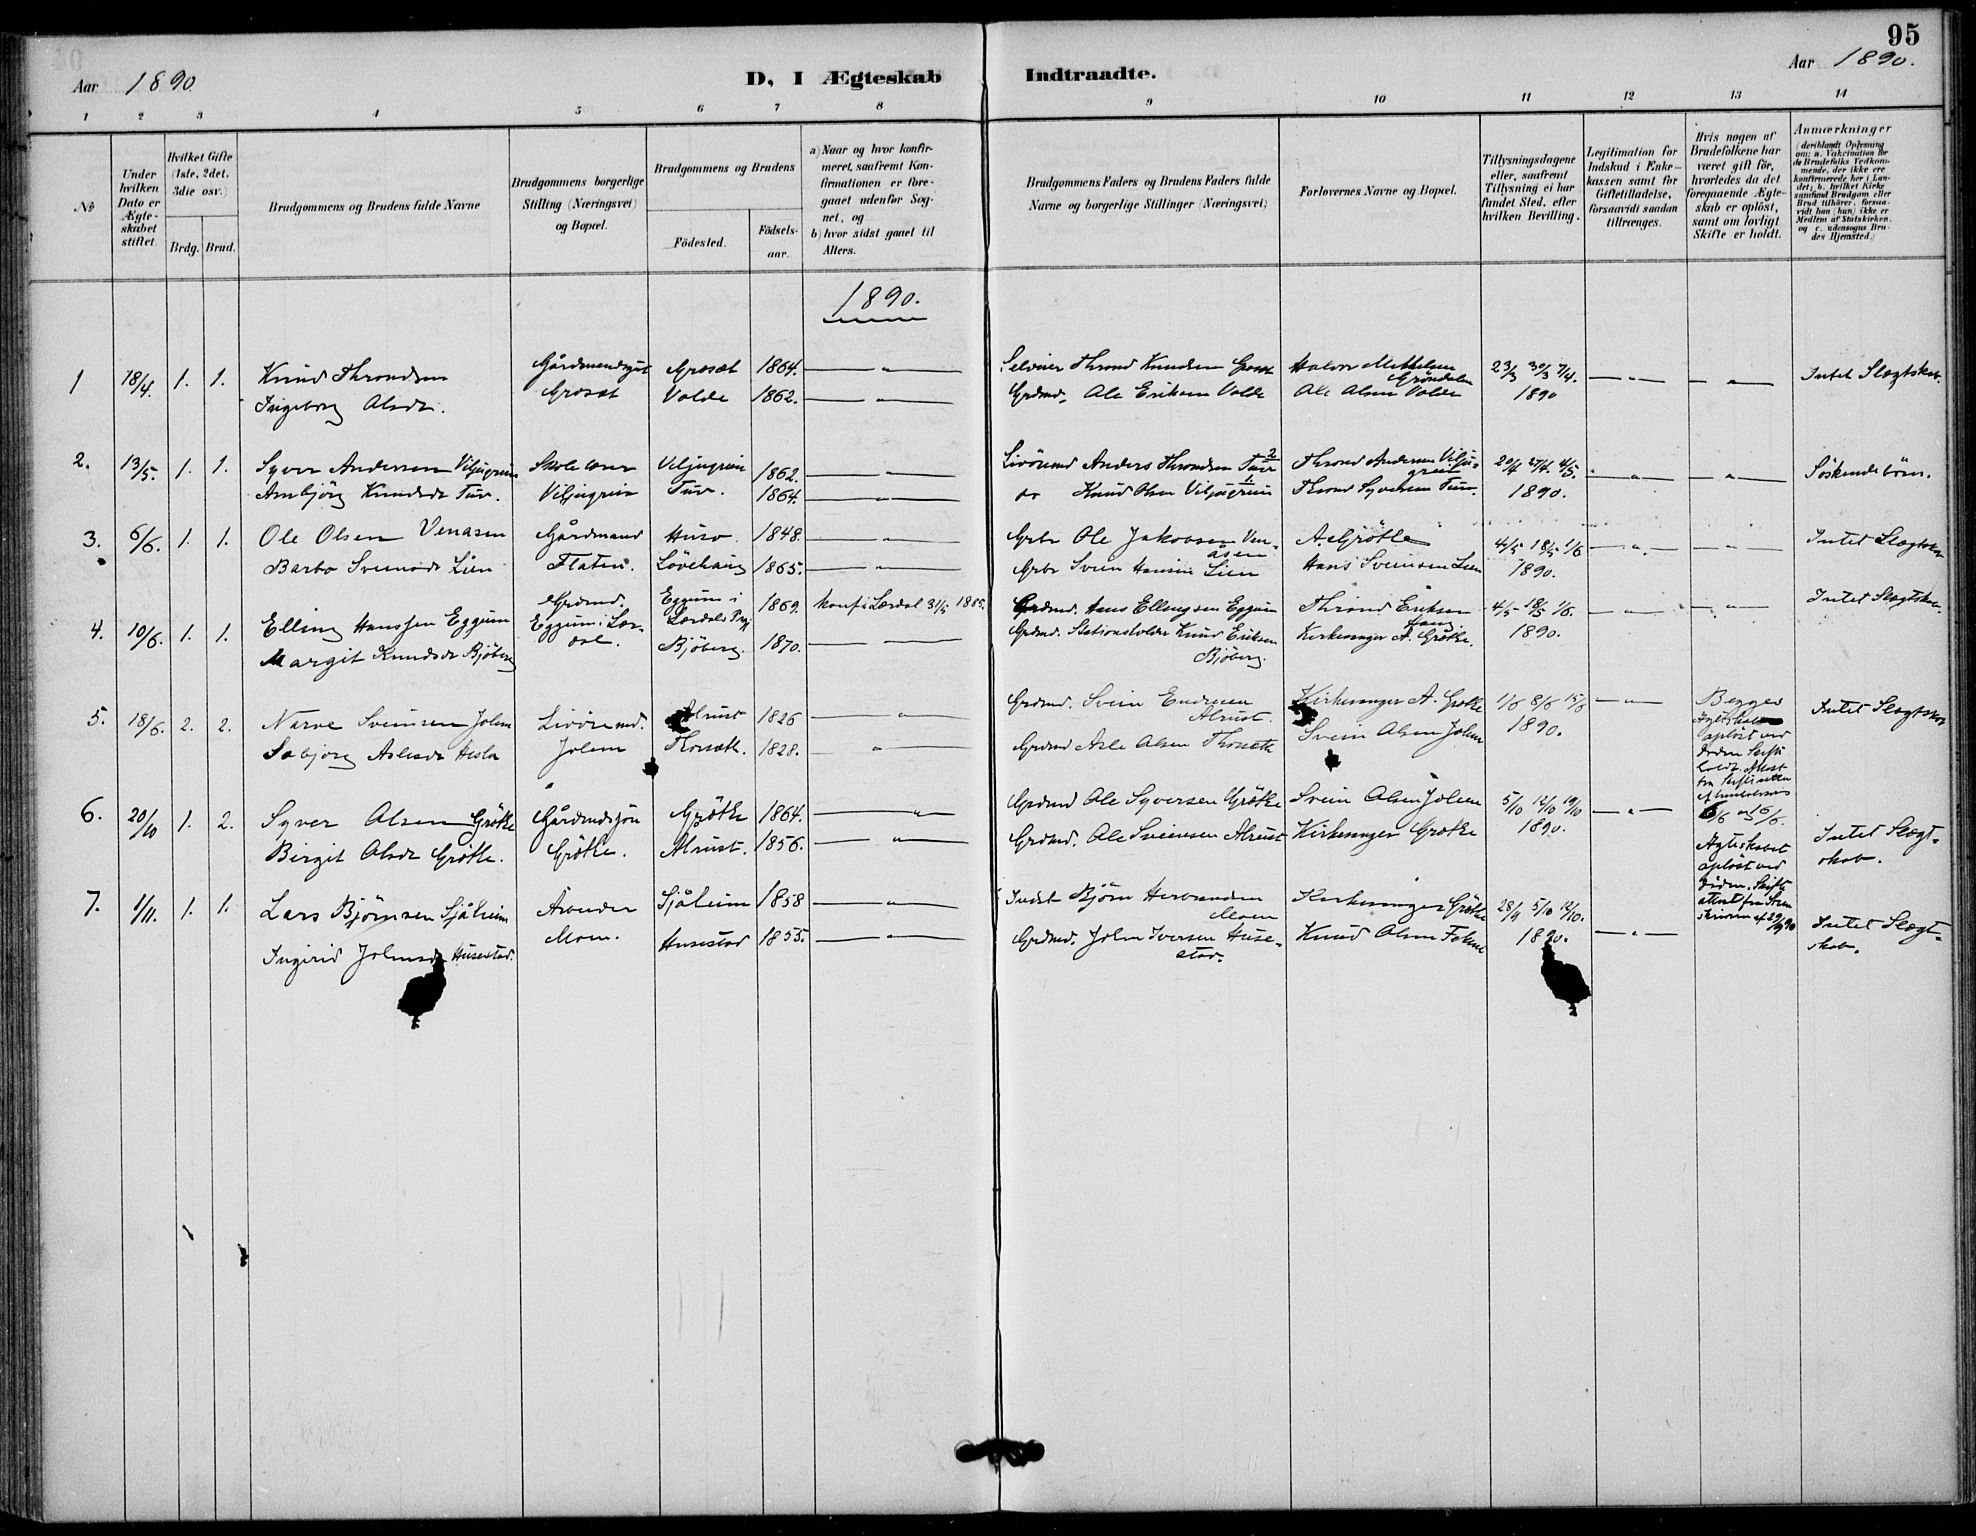 95
Aar 1890.
D, I Ægteskab Indtraadte.
Aar 1890.
1 2 3 4 5 6 7 8 9 10 11 12 13 14
No
Under hvilken Dato er Ægteskabet stiftet.
Hvilket Gifte (1ste, 2det, 3die osv.)
Brdg. Brud.
Brudgommens og Brudens fulde Navne
Brudgommens borgerlige Stilling (Næringsvei) og Bopæl.
Brudgommens og Brudens
Födested.
Födselsaar.
a) Naar og hvor konfirmeret, saafremt Konfirmationen er foregaaet udenfor Sognet, og
b) hvor sidst gaaet til Alters.
Brudgommens Faders og Brudens Faders fulde Navne og borgerlige Stillinger (Næringsvei)
Forlovernes Navne og Bopæl.
Tillysningsdagene eller, saafremt Tillysning ei har fundet Sted, efter hvilken Bevilling.
Legitimation for Indskud i Enkekassen samt for Giftetilladelse, forsaavidt saadan tiltrænges.
Hvis nogen af Brudefolkene har været gift før, hvorledes da det foregaaende Ægteskab er oplöst, samt om lovligt Skifte er holdt.
Anmærkninger (deriblandt Oplysning om: a. Vakcination for de Brudefolks Vedkommende, der ikke ere konfirmerede her i Landet; b. hvilket Kirkesamfund Brudgom eller Brud tilhörer, forsaavidt han (hun) ikke er Medlem af Statskirken, og c. udensogns Brudes Hjemsted.)
1890.
1 18/4. 1. 1. Knud Throndsen Gårdmandsgut Grosæt 1864. Selveier Thrond Knudsen Halvor Mikkelsen Gröndalen 23/3 30/3 7/4. Intet Slægtskab.
Ingeborg Olsdr. Grosæt Volde 1862. Grdmd. Ole Eriksen Volde Ole Olsen Volde 1890
2. 13/5. 1. 1. Syver Andersen Viljugrein Skolelærer Viljugrein 1862. Anders Throndsen Tuv Thrond Andersen Viljugrein 20/4 27/4 4/5. Söskendebörn.
Ambjörg Knudsdr Tuv. Viljugrein Tuv. 1864. do Knud Olsen Viljugrein Thrond Syversen Tuv. 1890.
3. 6/6. 1. 1. Ole Olsen Venasen Gårdmand Huso 1848. Grbr Ole Jakobsen Venåsen A. Grötte 4/5 18/5 1/6 Intet Slægtskab
Barbo Sveinsdr Lien Flaten. Lövehaug 1865. Grbr Svein Hansen Lien Hans Sveinsen Lien 1890.
4. 10/6. 1. 1. Elling Hanssen Eggum Grdmd. Eggum i Lærdal. Eggum i Lærdals Prgj 1869. konf i Lærdal 31/5 1885. Grdmd. Hans Ellingsen Eggum Thrond Eriksen Haug 4/5 18/5 1/6. Intet Slægtskab
Margit Knudsdr Bjöberg Bjöberg. 1870. Grdmd. Stationsholder Knud Eriksen Bjöberg. Kirkesanger A. Grötte. 1890.
5. 18/6. 2. 2. Narve Sveinsen Jolem Livöremd. Alrust 1826 Grdmd. Svein Endresen Alrust. Kirkesanger A. Grötte 1/6 8/6 15/6 Begges Ægteskab oplöst ved Döden Skifte holdt. Intet Slægtskab
Sebjörg Aslesdr Hesla Jolem Thorsæth. 1828. Grdmd Asle Olsen Thorseth Svein Olsen Jolem 1890.
6/6 og 16/6.
6. 20/10 1. 2. Syver Olsen Grötte Gårdmdssön Grötte 1864. Grdmd Ole Syversen Grötte Svein Olsen Jolem 5/10 12/10 19/10 Ægteskabet oplöst ved Döden. Skifteattest fra Sorenskriveren af 29/9 90 Intet Slægtskab.
Birgit Olsdr Grötte. Grötte. Alrust. 1856. Grdmd. Ole Sveinsen Alrust Kirkesanger Grötte 1890.
7. 1/11. 1. 1. Lars Björnsen Sjåheim Arbeider Sjåheim 1858 Indst Björn Herbrandsen Moen Kirkesanger Grötte 28/9 5/10 12/10. Intet Slægtskab.
Ingirid Johnsdr Husestad. Moen. Husestad 1855. Grdmd. John Iversen Husestad. Knud Olsen 1890.